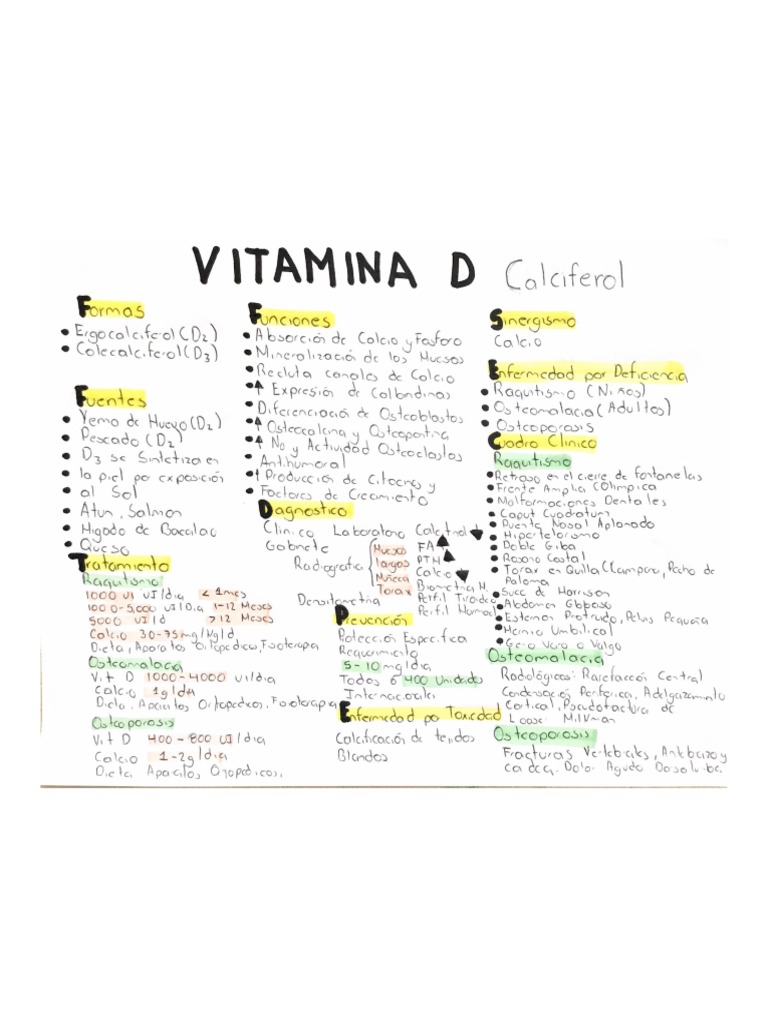 VITAMINA D Calciferol
Formas
• Ergocalciferol (D2)
• Colecalciferol (D3)
Fuentes
• Yema de Huevo (D2)
• Pescado (D2)
• D3 se Sintetiza en
• la piel po exposición
• al Sol
• Atun, Salmon
• Higado de Bacalao
• Queso
Tratamiento
Raquitismo
1000 UI UI/dia < 1mes
1000-5,000 UI/Dia 1-12 Meses
5000 UI/d >12 Meses
Calcio 30-75mg/Kg/d
Dieta, Aparatos Ortopedicos, Fisoterapia
Osteomalacia
Vit D 1000-4000 UI/dia
Calcio 1g/dia
Dieta, Aparatos Ortopedicos, Fisioterapia
Osteoporosis
Vit D 400-800 UI/dia
Calcio 1-2g/dia
Dieta Aparatos Ortopedicos.
Funciones
• Absorción de Calcio y Fosforo
• Mineralización de los Huesos
• Recluta canales de Calcio
• ↑ Expresión de Calbindinas
• Diferenciación de Osteoblastos
• ↑ Osteocalcina y Osteopontina
• ↑ No y Actividad Osteoclastos
• Antihumoral
• ↑ Producción de Citocinas y
• Factores de Crecimiento
Diagnostico
Clinico Laboratorio Calcitriol ↓
Gabinete FA ▲
Radiografia { Huesos largos Muñeca Torax PTH ▲
Calcio ▼
Densitometria Biometria H.
Perfil Tiroideo
Perfil Hormonal
Prevención
Potección Especifica
Requerimiento
5-10 mg/dia
Todos 400 Unidades
Internacionales
Enfermedad po Toxicidad
Calcificación de tejidos
Blandos
Sinergismo
Calcio
Enfermedad por Deficiencia
• Raquitismo (Niños)
• Osteomalacia (Adultos)
• Osteoporosis
Cuadro Clinico
Raquitismo
• Retraso en el cierre de fontanelas
• Frente Amplia (Olimpica
• Malformaciones Dentales
• Caput Cuadratum
• Puente Nasal Aplanado
• Hipertelorismo
• Doble Giba
• Rosario Costal
• Torax en Quilla (Campana, Pecho de
Paloma
• Surc de Harrison
• Abdomen Globoso
• Esternon Protruido, Pelvis Pequeña
• Hernia Umbilical
• Geno Varo o Valgo
Osteomalacia
Radológicos: Rarefacción Central
Condensación Periferica, Adelgazamiento
Cortical, Pseudofractura de
Looser Milkman
Osteoporosis
Fracturas Vertebrales, Antebrazo y
Cadera. Dolor Agudo Dorsolumbar